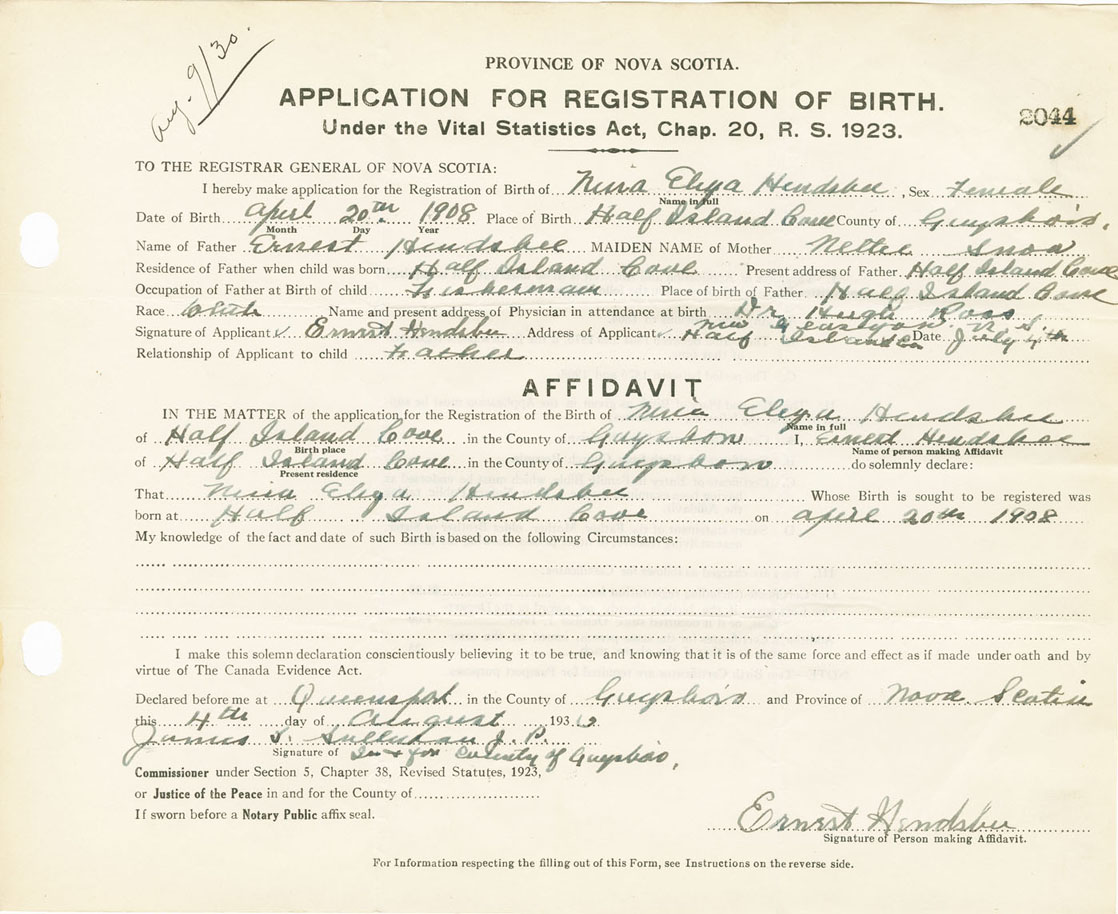 Aug. 9/30.
PROVINCE OF NOVA SCOTIA.
APPLICATION FOR REGISTRATION OF BIRTH.
2044
Under the Vital Statistics Act, Chap. 20, R. S. 1923.
TO THE REGISTRAR GENERAL OF NOVA SCOTIA:
I hereby make application for the Registration of Birth of Nina Eliza Hendsbee, Sex Female
Name in full
Date of Birth April 20th 1908 Place of Birth Half Island Cove County of Guysboro.
Month Day Year
Name of Father Ernest Hendsbee MAIDEN NAME of Mother Nettie Snow
Residence of Father when child was born Half Island Cove Present address of Father Half Island Cove
Occupation of Father at Birth of child Fisherman Place of birth of Father Half Island Cove
Race White Name and present address of Physician in attendance at birth Dr Hugh Ross
New Glasgow N. S.
Signature of Applicant Ernest Hendsbee Address of Applicant Half Island Date July 4th
Relationship of Applicant to child Father
AFFIDAVIT
IN THE MATTER of the application for the Registration of the Birth of Nina Eliza Hendsbee
Name in full
of Half Island Cove in the County of Guysboro I, Ernest Hendsbee
Birth place Name of person making Affidavit
of Half Island Cove in the County of Guysboro do solemnly declare:
Present residence
That Nina Eliza Hendsbee Whose Birth is sought to be registered was
born at Half Island Cove on April 20th 1908
My knowledge of the fact and date of such Birth is based on the following Circumstances:
I make this solemn declaration conscientiously believing it to be true, and knowing that it is of the same force and effect as if made under oath and by
virtue of The Canada Evidence Act.
Declared before me at Queensport in the County of Guysboro and Province of Nova Scotia
this 4th day of August 193
James S. Sullivan J. P.
Signature of In & for County of Guysboro,
Commissioner under Section 5, Chapter 38, Revised Statutes, 1923,
or Justice of the Peace in and for the County of
If sworn before a Notary Public affix seal.
Ernest Hendsbee
Signature of Person making Affidavit.
For Information respecting the filling out of this Form, see Instructions on the reverse side.